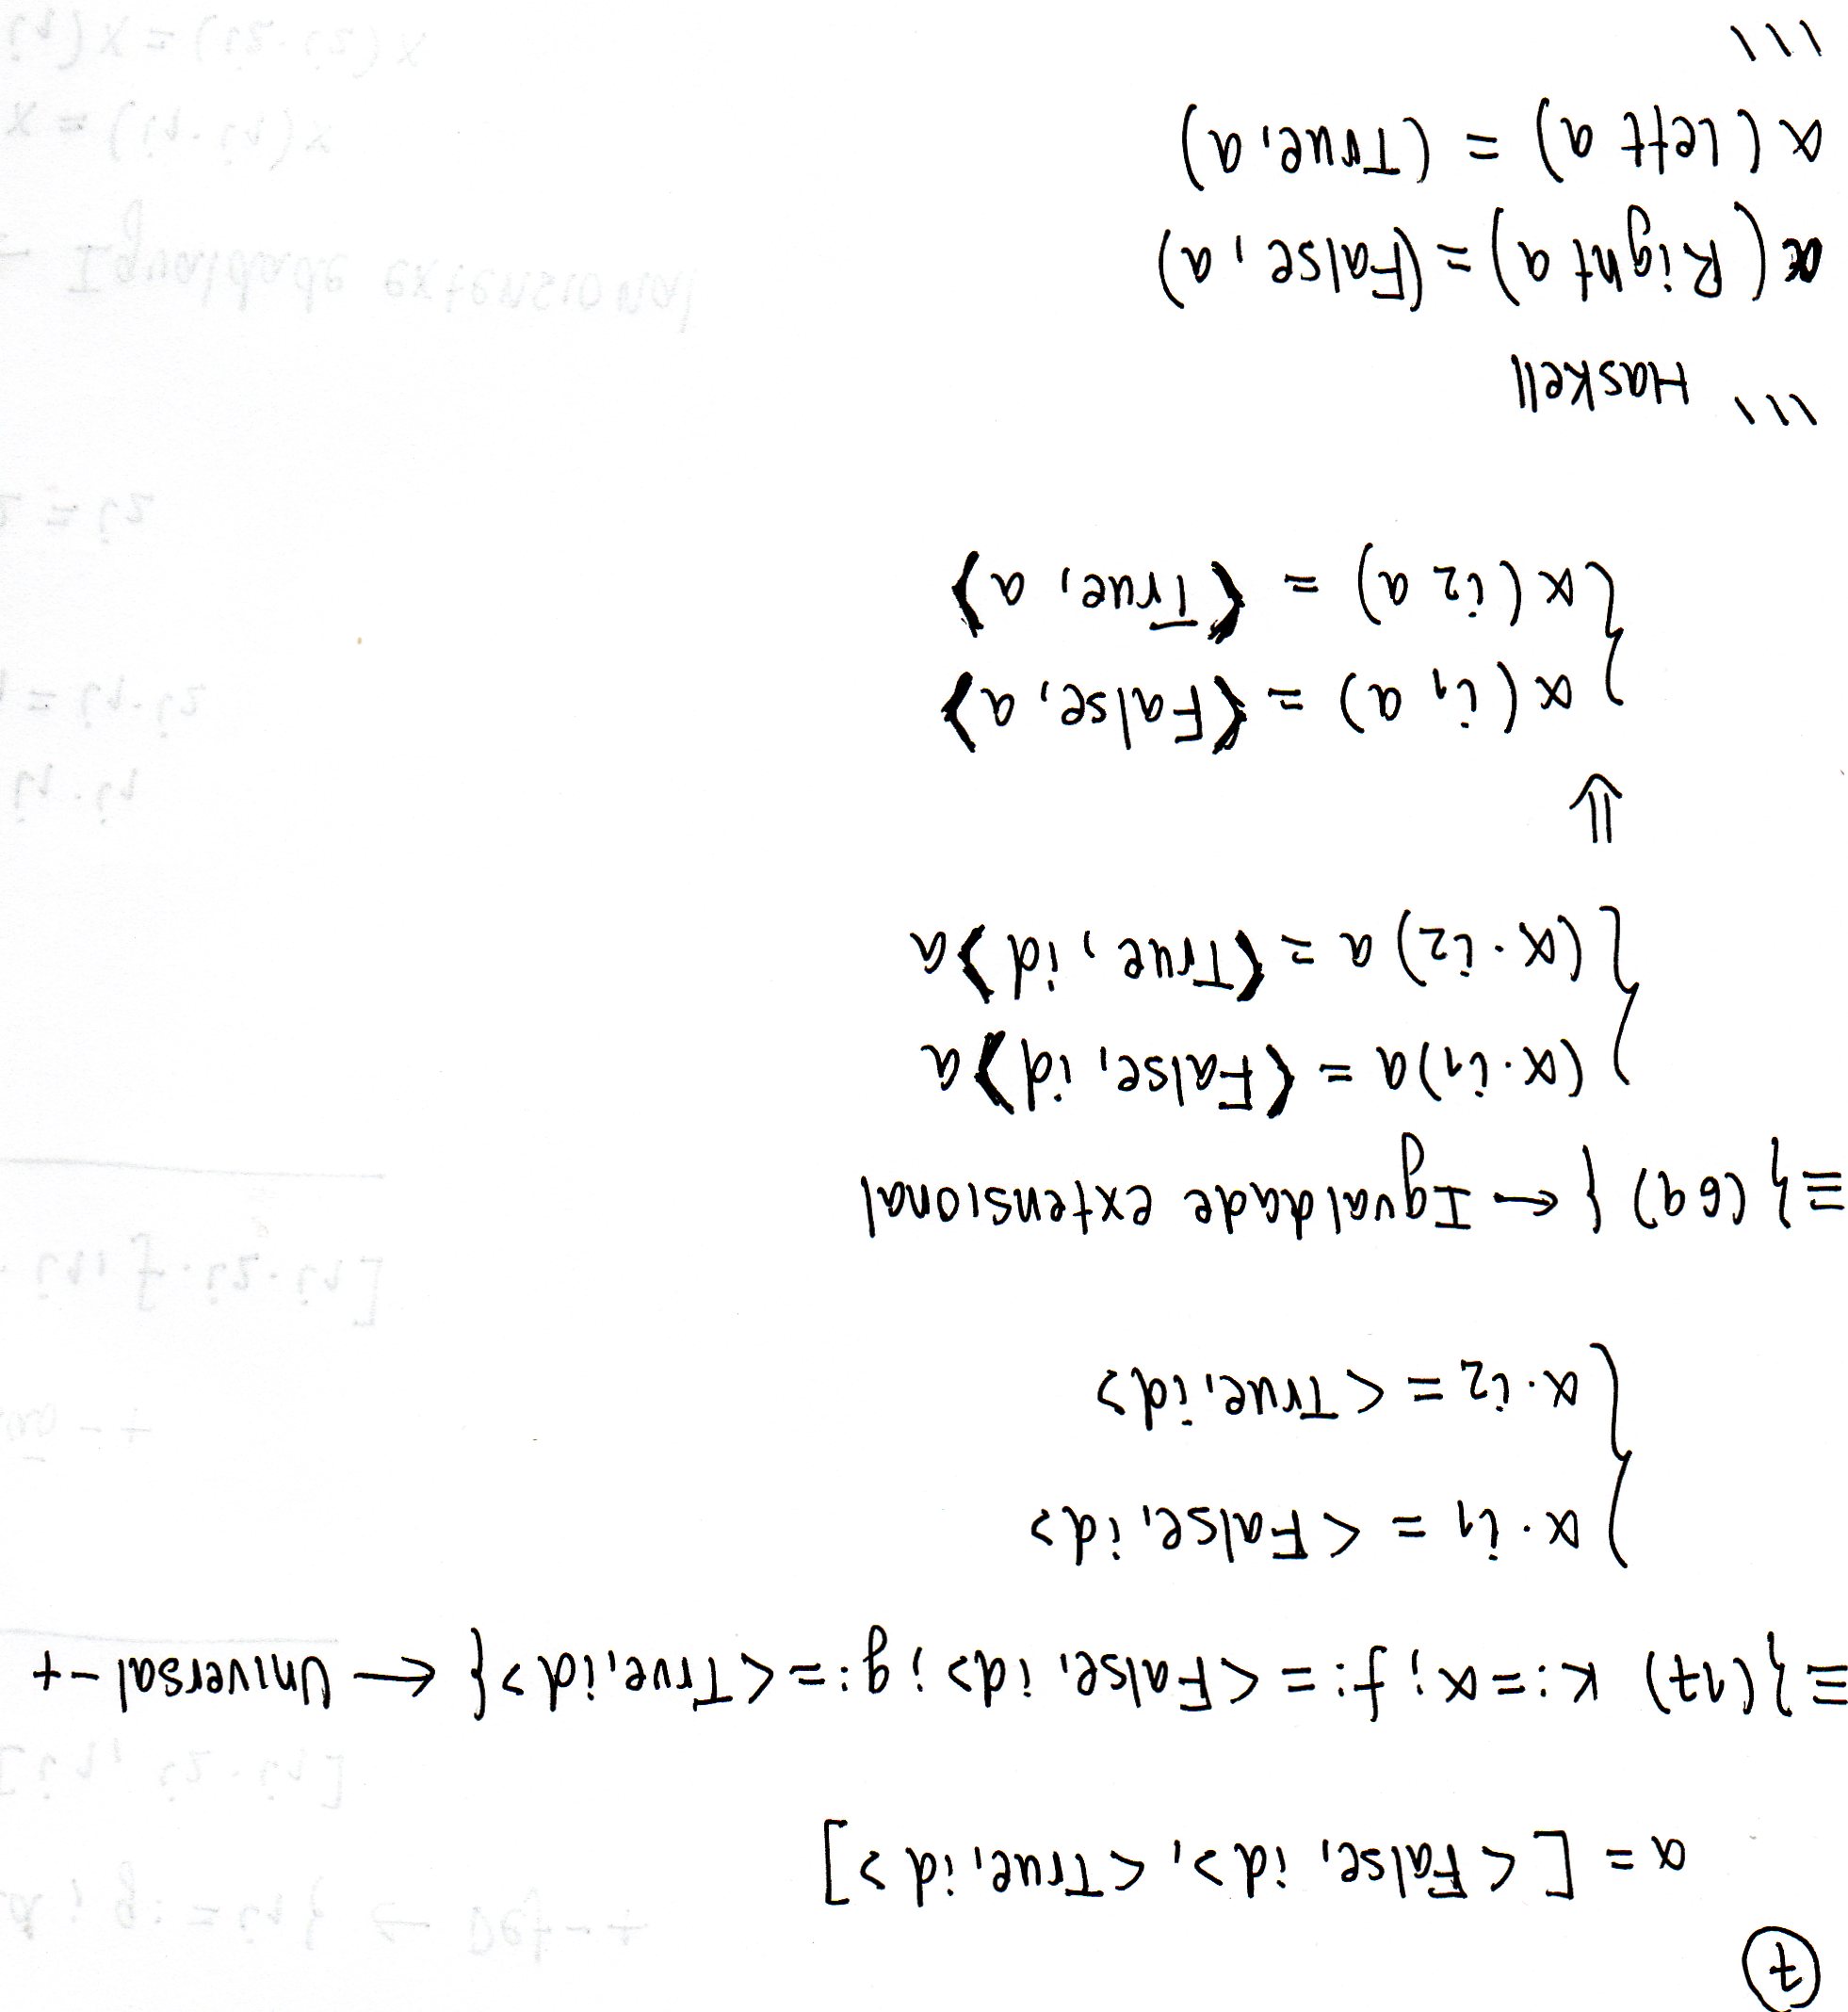 7
α = [<False, id>, <True, id>]
≡{(17) K:=α; f:=<False, id>; g:=<True, id>} ← Universal-+
α·i1 = <False, id>
α·i2 = <True, id>
≡{(69)} ← Igualdade extensional
(α·i1)a = <False, id>a
(α·i2)a = <True, id>a
⇓
α(i1 a) = (False, a)
α(i2 a) = (True, a)
``` Haskell
α(Right a) = (False, a)
α(Left a) = (True, a)
```